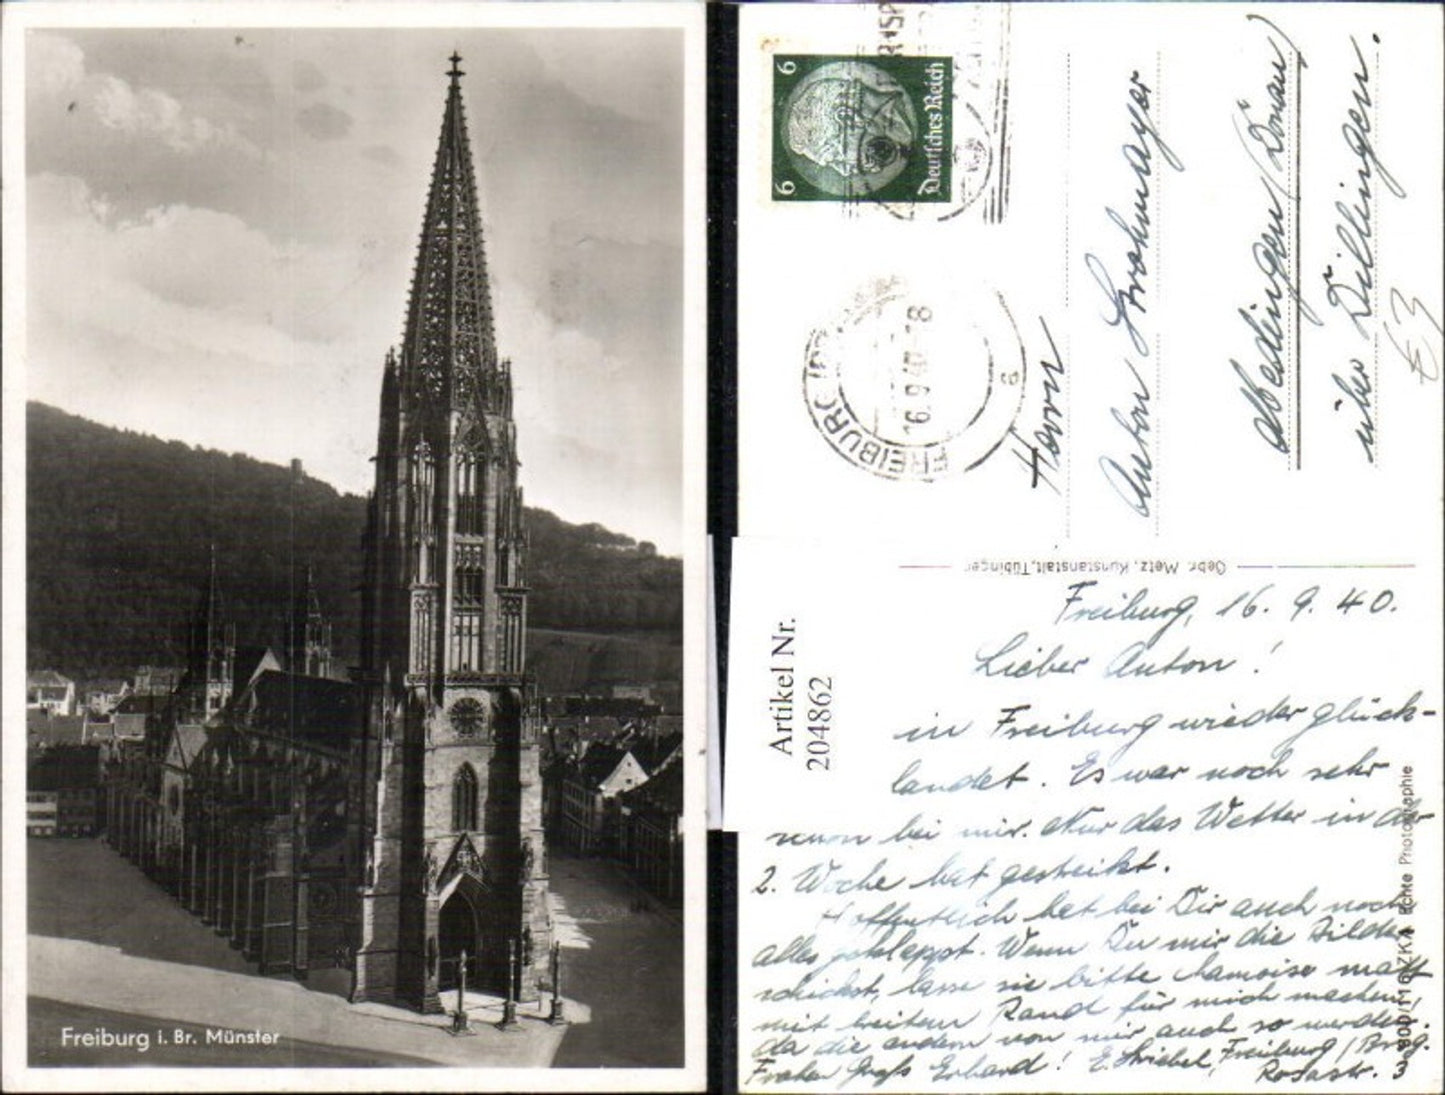 Freiburg i. Br. Münster
6
6
Deutsches Reich
FREIBURG
16.9.40.-18
a
Herrn
Anton Grohmayer
Medingen (Donau)
über Dillingen.
E3
Gebr. Metz, Kunstanstalt, Tübingen
Artikel Nr.
204862
Freiburg, 16. 9. 40.
Lieber Anton!
in Freiburg wieder glück-
landet. Es war noch sehr
bei mir. Nur das Wetter in der
2. Woche hat gestreikt.
Hoffentlich hat bei Dir auch noch
alles geklappt. Wenn Du mir die Bilder
schickst, lasse sie bitte chamoise matt
mit breitem Rand für mich machen,
da die andern von mir auch so werden.
Frohen Gruß Erhard! E. Striebel, Freiburg / Brsg.
Rosastr. 3
Echte Photographie